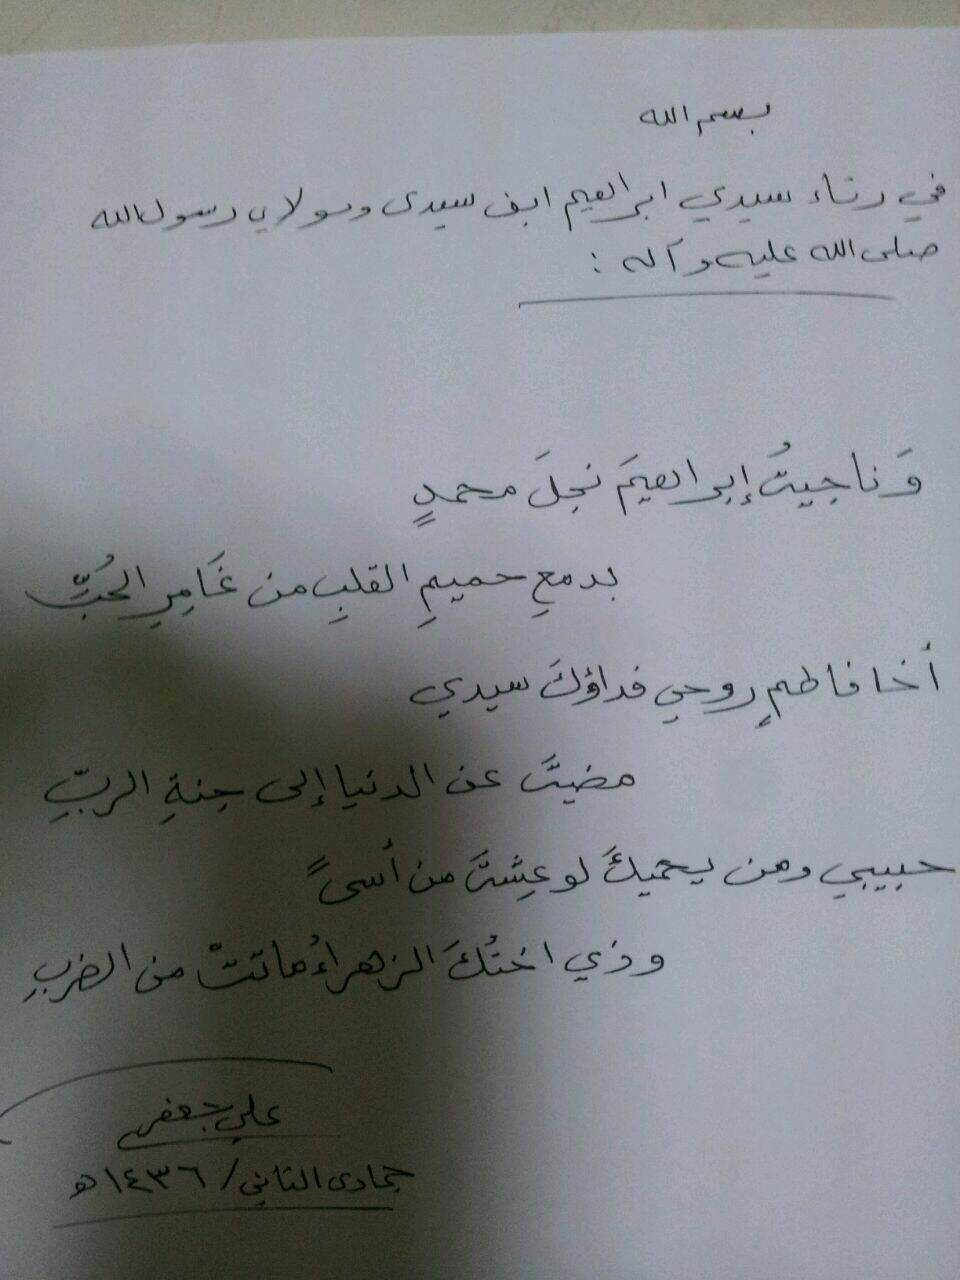 بسم الله
في رثاء سيدي ابراهيم ابن سيدي ومولاي رسول الله
صلى الله عليه وآله :
وَناجيتُ إبراهيمَ نجلَ محمدٍ
بدمعِ حميمِ القلبِ من غَامِرِ الحُبِّ
أخا فاطمٍ روحي فداؤكَ سيدي
مضيتَ عن الدنيا إلى جنةِ الربِّ
حبيبي ومن يحميكَ لو عِشتَ من أسىً
وذي اختُكَ الزهراءُ ماتتْ من الضربِ
علي جعفر
جمادى الثاني / ١٤٣٦ هـ